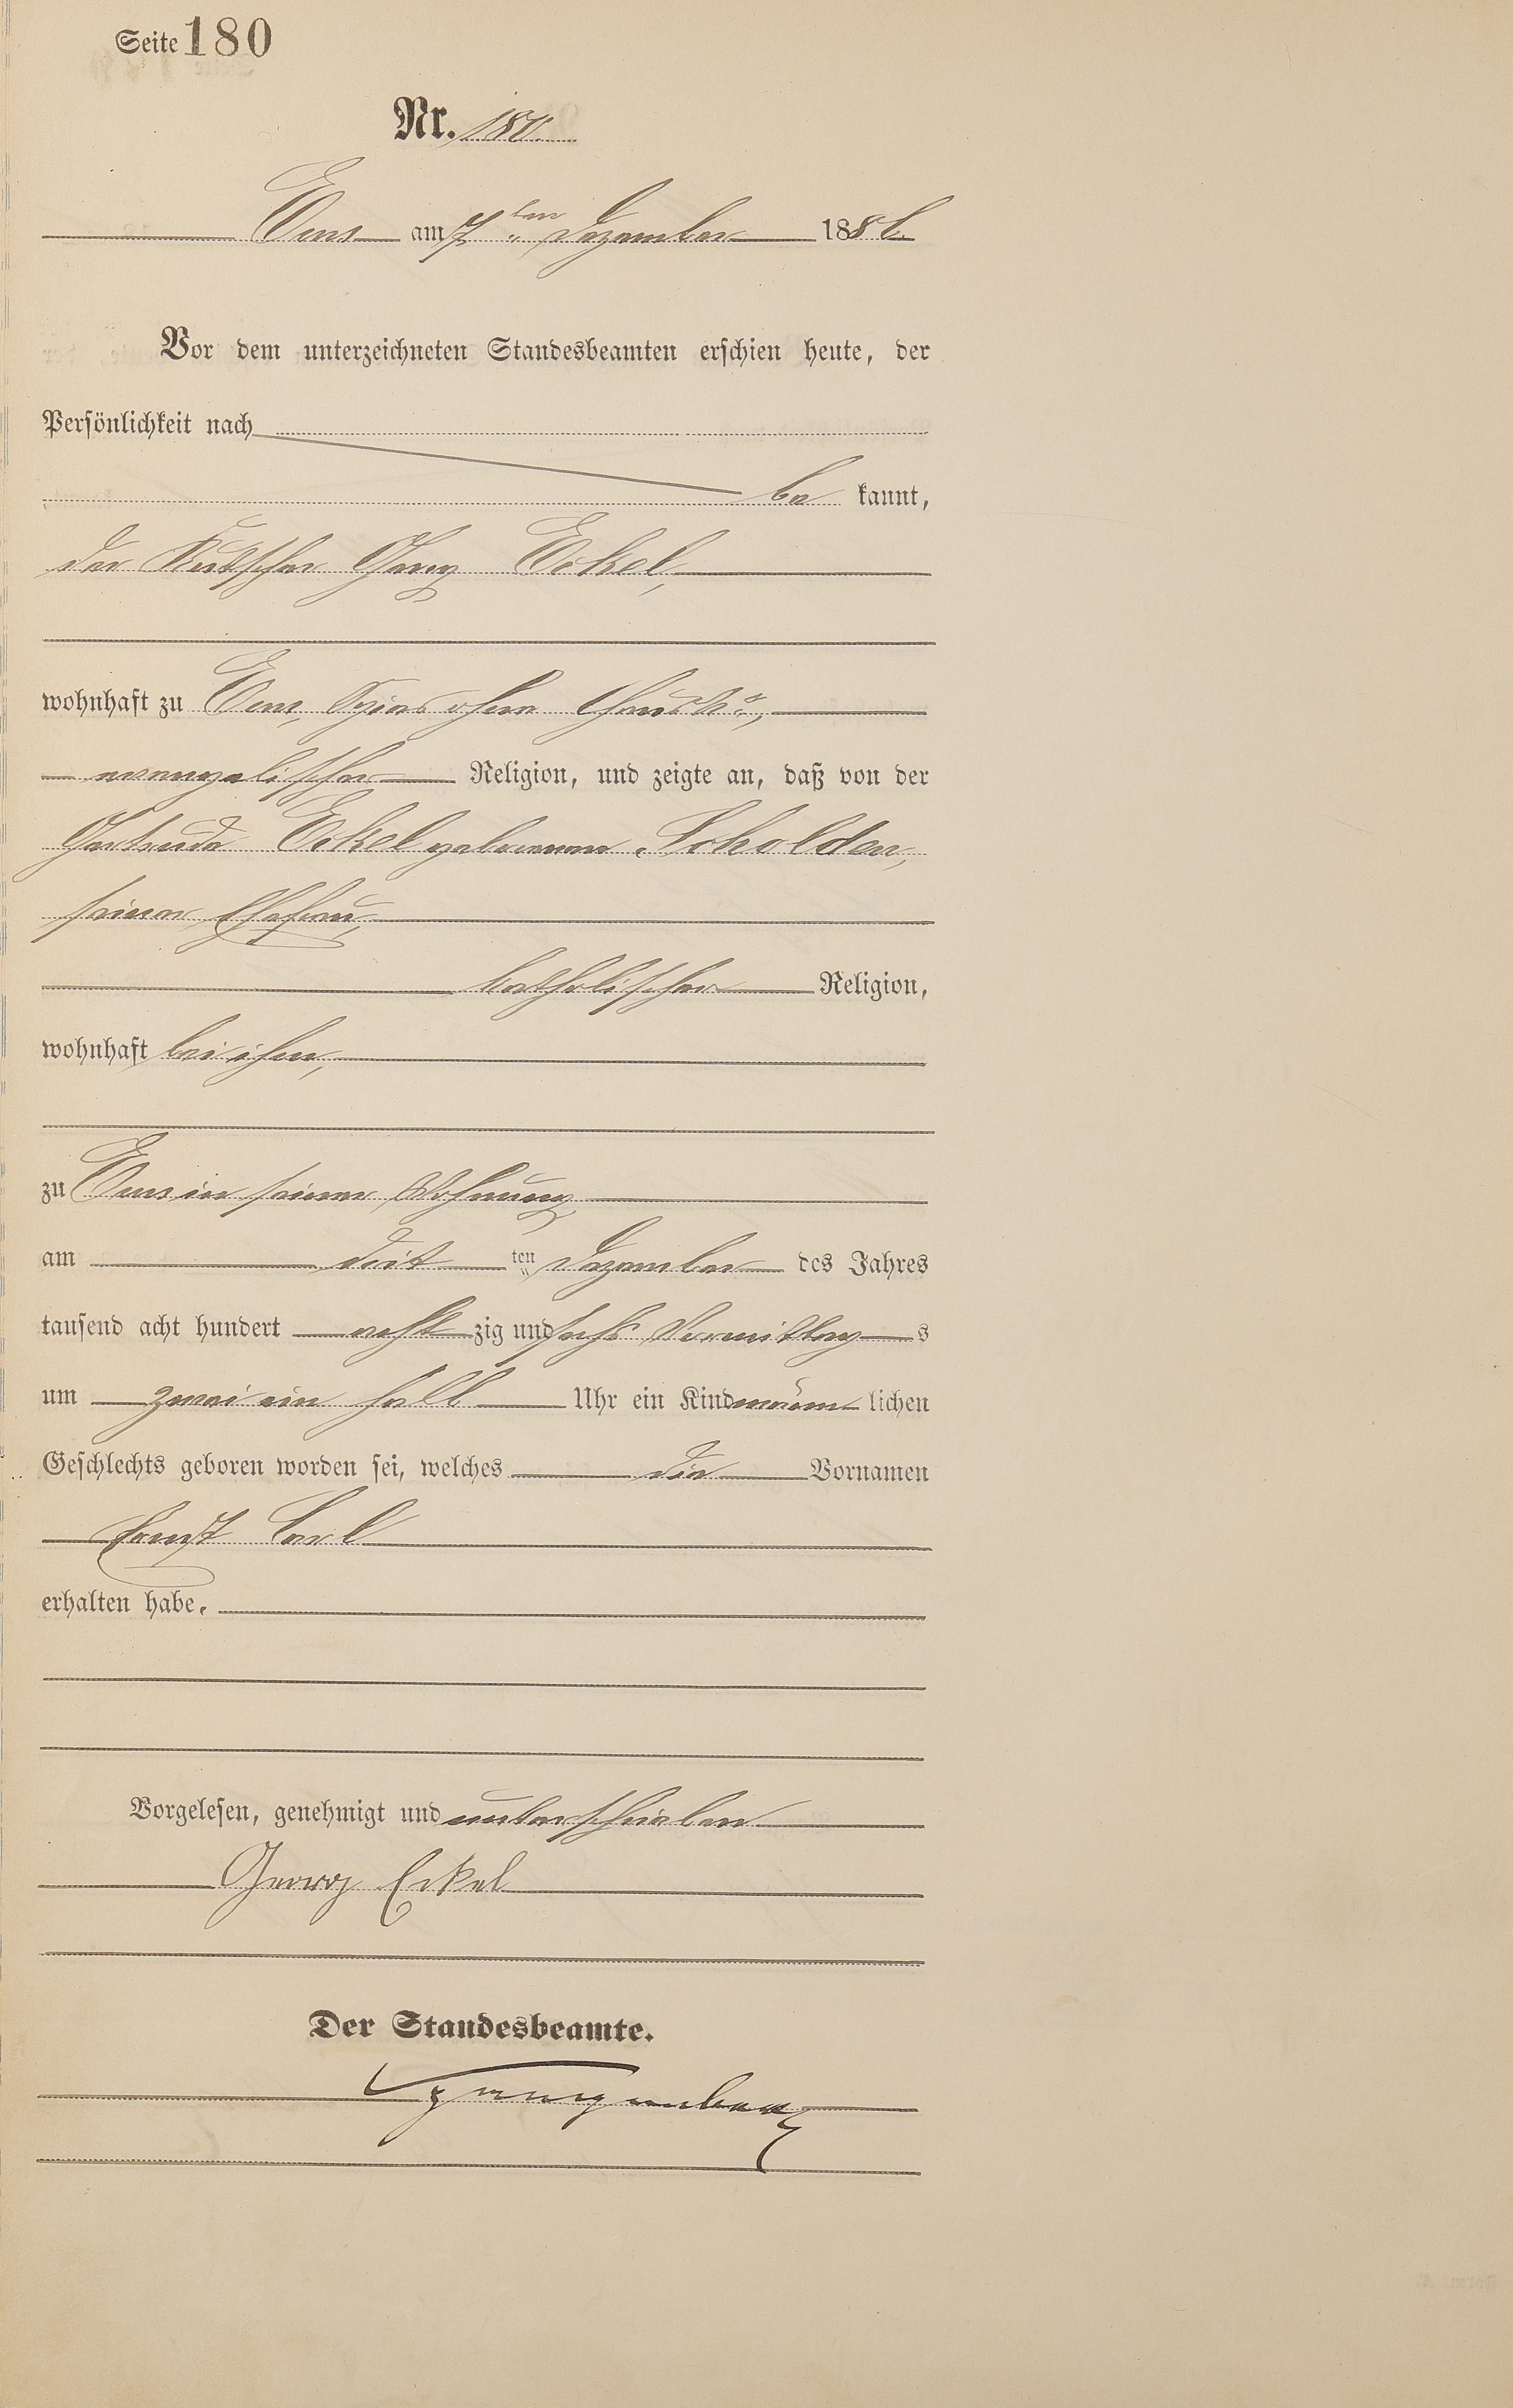 Seite 180
Nr. 180.
Ems am 7ten Dezember 1886.
Vor dem unterzeichneten Standesbeamten erschien heute, der
Persönlichkeit nach
be kannt,
der Kutscher Georg Eckel,
wohnhaft zu Ems, Spies ohne Haus No,
evangelischer Religion, und zeigte an, daß von der
Gertrude Eckel geborenen Scholden,
seiner Ehefrau,
katholischer Religion,
wohnhaft bei ihm,
zu Ems in seiner Wohnung
am drit ten Dezember des Jahres
tausend acht hundert acht zig und sechs Vormittag s
um zwei ein halb Uhr ein Kind männ lichen
Geschlechts geboren worden sei, welches die Vornamen
Ernst Carl
erhalten habe.
Vorgelesen, genehmigt und unterschrieben
Georg Eckel
Der Standesbeamte.